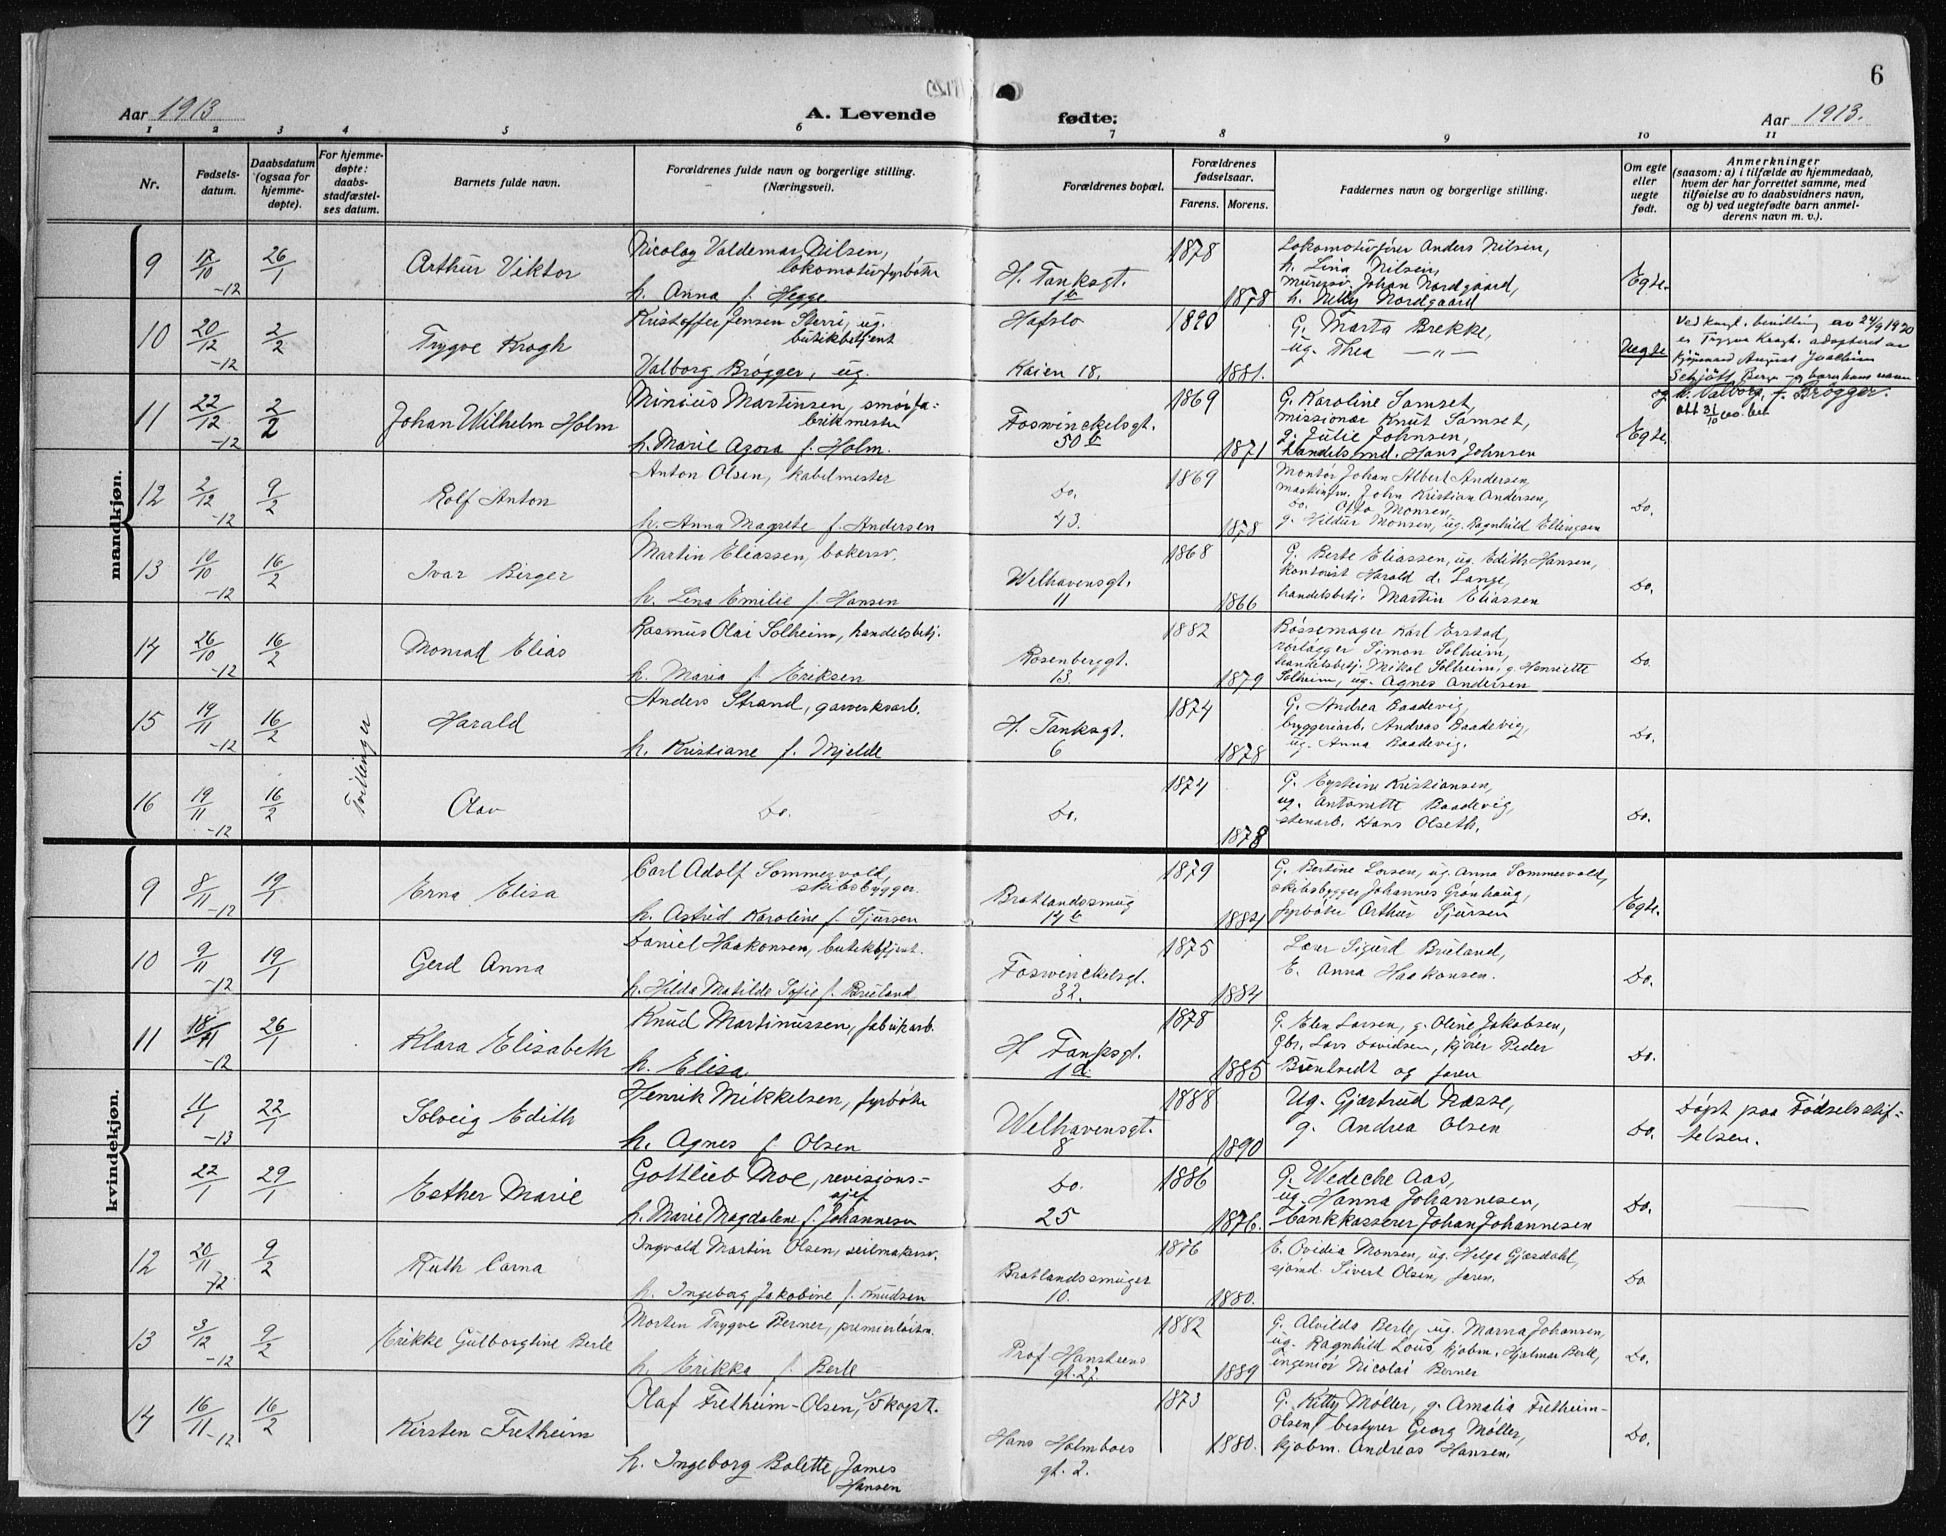 6
Aar 1913
A. Levende
fødte.
Aar 1913.
1 2 3 4 5 6 7 8 9 10 11
Nr.
Fødsels-
datum.
Daabsdatum
(ogsaa for
hjemme-
døpte).
For hjemme-
døpte:
daabs-
stadfæstel-
ses datum.
Barnets fulde navn.
Forældrenes fulde navn og borgerlige stilling.
(Næringsvei).
Forældrenes bopæl.
Forældrenes
fødselsaar.
Farens. Morens.
Faddernes navn og borgerlige stilling.
Om egte
eller
uegte
født.
Anmerkninger
(saasom: a) i tilfælde av hjemmedaab,
hvem der har forrettet samme, med
tilføielse av to daabsvidners navn,
og b) ved uegtefødte barn anmel-
derens navn m. v.).
mandkjøn.
9
12/10 -12
26/1
Arthur Viktor
Nicolay Valdemar Nilsen,
lokomotivfyrbøter
h. Anna f. Hegge
H. Tanksgt.
1b
1878
1878
Lokomotivfører Anders Nilsen,
h. Lina Nilsen,
murersv. Johan Nordgaard,
h. Nelly Nordgaard
Egte.
10
20/12 -12
2/2
Trygve Krogh
Kristoffer Jensen Sterri, ug.
butikbetjent
Valborg Brøgger, ug.
Hafslo
Kaien 18.
1890
1881.
G. Marta Brekke,
ug. Thea — " —
Uegte
Ved kngl. bevilling av 24/9 1920
er Trygve Krogh adopteret av
kjøpmand August Joachim
Schjøtt Berge og barerhans navn
og h. Valborg f. Brøgger.
11
22/12 -12
2/2
Johan Wilhelm Holm
Minius Martinsen, smørfa-
brikmester
h. Marie Agora f. Holm.
Foswinckelsgt.
50b
1869
1871
G. Karoline Samset,
missionær Knut Samset,
g. Julie Johnsen,
Handelsmd. Hans Johnsen
Egte.
12
2/12 -12
9/2
Rolf Anton
Anton Olsen, kabelmester
h. Anna Magrete f. Andersen
Do.
43.
1869
1878
Montør Johan Albert Andersen,
maskinm. John Kristian Andersen,
Do. Otto Monsen,
g. Hildur Monsen, ug. Ragnhild Ellingsen
Do.
13
10/10 -12
16/2
Ivar Birger
Martin Eliassen, bokersv.
h. Lina Emilie f. Hansen
Welhavensgt.
11
1868
1866
G. Berte Eliassen, ug. Edith Hansen,
kontorist Harald d. Lange,
handelsbetj. Martin Eliassen
Do.
14
26/10 -12
16/2
Monrad Elias
Rasmus Olai Solheim, handelsbetj.
h. Maria f. Eriksen
Rosenberggt.
13
1882
1879
Bøssemager Karl Erstad,
rørlægger Simon Solheim,
handelsbetj. Mikal Solheim, g. Henriette
Solheim, ug. Agnes Andersen
Do.
15
19/11 -12
16/2
Tvillinger
Harald
Anders Strand, gasverksarb.
h. Kristiane f. Mjelde
H. Tanksgt.
6
1874
1878
G. Andrea Baadevig,
bryggeriarb. Andreas Baadevig,
ug. Anna Baadevig.
Do.
16
19/11 -12
16/2
Olav
Do.
Do.
1874
1878
G. Eystein Kristiansen,
ug. Antonette Baadevig,
stenarb. Hans Olseth.
Do.
kvindekjøn.
9
8/11 -12
19/1
Erna Elisa
Carl Adolf Sommervold,
skibsbygger
h. Astrid Karoline f. Sjursen
Bratlandssmug
14b
1879
1884
G. Bertine Larsen, ug. Anna Sommervold,
skibsbygger Johannes Grønhaug,
fyrbøter Arthur Sjursen
Egte.
10
9/11 -12
19/1
Gerd Anna
Daniel Haakonsen, butikbetjent.
h. Hilda Matilde Sofie f. Bruland
Foswinckelsgt.
32.
1875
1884
Lærer Sigurd Bruland,
E. Anna Haakonsen.
Do.
11
18/11 -12
26/1
Klara Elisabeth
Knud Martinussen, fabrikarb.
h. Elisa
H. Tanksgt.
1d
1878
1885
G. Elen Larsen, g. Oline Jakobsen,
Gbr. Lars Davidsen, kjører Peder
og faren
Do.
11/1 -13
22/1
Solveig Edith
Henrik Mikkelsen, fyrbøter
h. Agnes f. Olsen
Welhavensgt.
8
1888
1890
Ug. Gjærtrud Næsse,
g. Andrea Olsen
Do.
Døpt paa Fødselsstif-
telsen.
22/1
29/1
Esther Marie
Gottlieb Moe, revisjons-
sjef
h. Marie Magdalene f. Johannesen
Do.
25
1886
1876.
G. Wedeche Aas,
ug. Hanna Johannesen,
bankkasserer Johan Johannesen
Do.
12
20/11 -12
9/2
Ruth Carna
Ingvald Martin Olsen, seilmakersv.
h. Ingeborg Jakobine f. Knudsen
Bratlandssmuget
10.
1876
1880.
E. Ovidia Monsen, ug. Helga Gjæsdahl,
sjømd. Sivert Olsen, faren.
Do
13
3/12 -12
9/2
Erikke Gulborgtine Berle
Morten Trygve Berner, premierløitn.
h. Erikka f. Berle
Prof. Hansteens
gt. 27
1882
1889
G. Alvilda Berle, ug. Marna Johansen,
ug. Ragnhild Lous, kjøbm. Hjalmar Berle,
ingeniør Nicolai Berner
Do.
14
16/11 -12
16/2
Kirsten Fretheim
Olaf Fretheim-Olsen, skapt.
h. Ingeborg Bolette James
Hansen
Hans Holmboes
gt. 2.
1873
1880.
G. Kitty Møller, g. Amalia Fretheim-
Olsen, bestyrer Georg Møller,
kjøbm. Andreas Hansen.
Do.